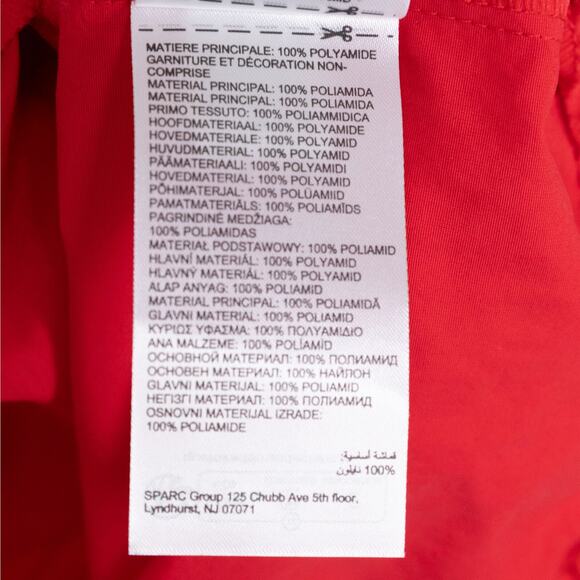 MATIERE PRINCIPALE: 100% POLYAMIDE
GARNITURE ET DÉCORATION NON-
COMPRISE
MATERIAL PRINCIPAL: 100% POLIAMIDA
MATERIAL PRINCIPAL: 100% POLIAMIDA
PRIMO TESSUTO: 100% POLIAMMIDICA
HOOFDMATERIAAL: 100% POLYAMIDE
HOVEDMATERIALE: 100% POLYAMID
HUVUDMATERIAL: 100% POLYAMID
PÄÄMATERIAALI: 100% POLYAMIDI
HOVEDMATERIAL: 100% POLYAMID
PÕHIMATERJAL: 100% POLÜAMIID
PAMATMATERIĀLS: 100% POLIAMĪDS
PAGRINDINĖ MEDŽIAGA:
100% POLIAMIDAS
MATERIAŁ PODSTAWOWY: 100% POLIAMID
HLAVNÍ MATERIÁL: 100% POLYAMID
HLAVNÝ MATERIÁL: 100% POLYAMID
ALAP ANYAG: 100% POLIAMID
MATERIAL PRINCIPAL: 100% POLIAMIDĂ
GLAVNI MATERIAL: 100% POLIAMID
ΚΥΡΙΩΣ ΥΦΑΣΜΑ: 100% ΠΟΛΥΑΜΙΔΙΟ
ANA MALZEME: 100% POLİAMİD
ОСНОВНОЙ МАТЕРИАЛ: 100% ПОЛИАМИД
ОСНОВЕН МАТЕРИАЛ: 100% НАЙЛОН
GLAVNI MATERIJAL: 100% POLIAMID
НЕГІЗГІ МАТЕРИАЛ: 100% ПОЛИАМИД
OSNOVNI MATERIJAL IZRADE:
100% POLIAMIDE
قماشة أساسية:
100% نايلون
SPARC Group 125 Chubb Ave 5th floor,
Lyndhurst, NJ 07071